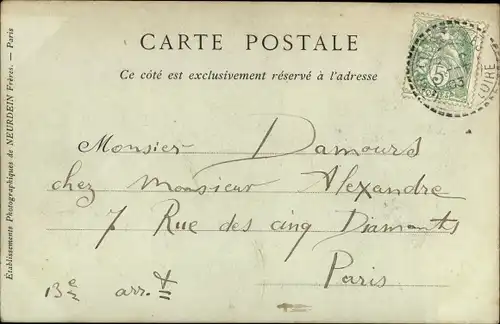 CARTE POSTALE
Ce côté est exclusivement réservé à l'adresse
Monsieur Damours
chez Monsieur Alexandre
7 Rue des cinq Diamants
Paris
13e arrt
Etablissements Photographiques de NEURDEIN Frères. — Paris
5
LOIRE